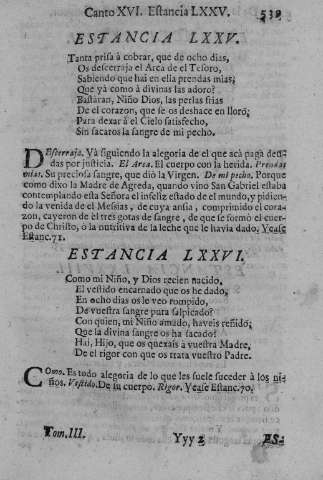 Canto XVI. Estancia LXXV. 539
ESTANCIA LXXV.
Tanta prisa à cobrar, que de ocho dias,
Os descerraja el Arca de el Tesoro,
Sabiendo que hai en ella prendas mias,
Que yà como à divinas las adoro?
Bastàran, Niño Dios, las perlas frias
De el corazon, que se os deshace en lloro;
Para dexar à el Cielo satisfecho,
Sin sacaros la sangre de mi pecho.
Descerraja. Và siguiendo la alegoria de el que acà paga deudas
por justicia. El Arca. El cuerpo con la herida. Prendas
mias. Su preciosa sangre, que diò la Virgen. De mi pecho. Porque
como dixo la Madre de Agreda, quando vino San Gabriel estaba
contemplando esta Señora el infeliz estado de el mundo, y pidiendo
la venida de el Messias, de cuya ansia, comprimido el corazon,
cayeron de èl tres gotas de sangre, de que se formò el cuerpo
de Christo, ò la nutritiva de la leche que le havia dado. Vease
Estanc. 71.
ESTANCIA LXXVI.
Como mi Niño, y Dios recien nacido,
El vestido encarnado que os he dado,
En ocho dias os le veo rompido,
De vuestra sangre pura salpicado?
Con quien, mi Niño amado, haveis reñido;
Que la divina sangre os ha sacado?
Hai, Hijo, que os quexais à vuestra Madre,
De el rigor con que os trata vuestro Padre.
Como. Es todo alegoria de lo que les suele suceder à los niños.
Vestido. De su cuerpo. Rigor. Vease Estanc. 70.
Tom. III. Yyy 2 ES-